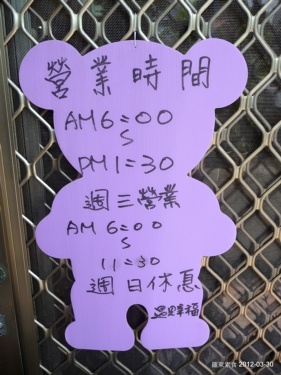 營業時間
AM6=00
S
PM1=30
週三營業
AM 6=00
S
11=30
週日休息
羅東素食 2012-03-30